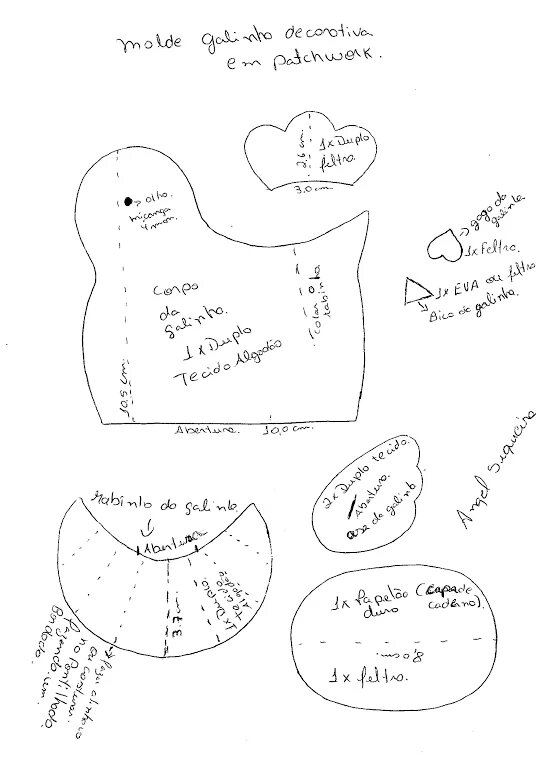 molde galinha decorativa
em patchwork.
1x Duplo
feltro.
2.6 cm
3.0 cm
olho.
miçanga
4 mm.
gogo da
galinha
1x feltro.
1x EVA ou feltro
Bico da galinha.
Corpo
da
galinha.
1x Duplo
Tecido Algodão
colar
rabinho
10,5 cm.
Abertura. 10,0 cm.
Angel Siqueira
2x Duplo tecido.
Abertura.
asa da galinh
Rabinho da galinha
Abertura
3.7 cm.
1x Duplo
tecido
Algodão
ou costurar
no pontilhado
fazendo um
Bordado.
1x Papelão (capa de
duro caderno).
8,0 cm.
1x feltro.